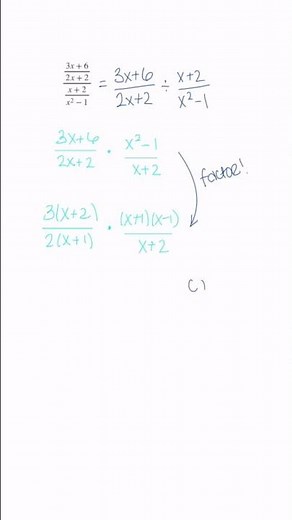 \frac{\frac{3x+6}{2x+2}}{\frac{x+2}{x^2-1}} = \frac{3x+6}{2x+2} ÷ \frac{x+2}{x^2-1}
\frac{3x+6}{2x+2} · \frac{x^2-1}{x+2}
factor!
\frac{3(x+2)}{2(x+1)} · \frac{(x+1)(x-1)}{x+2}